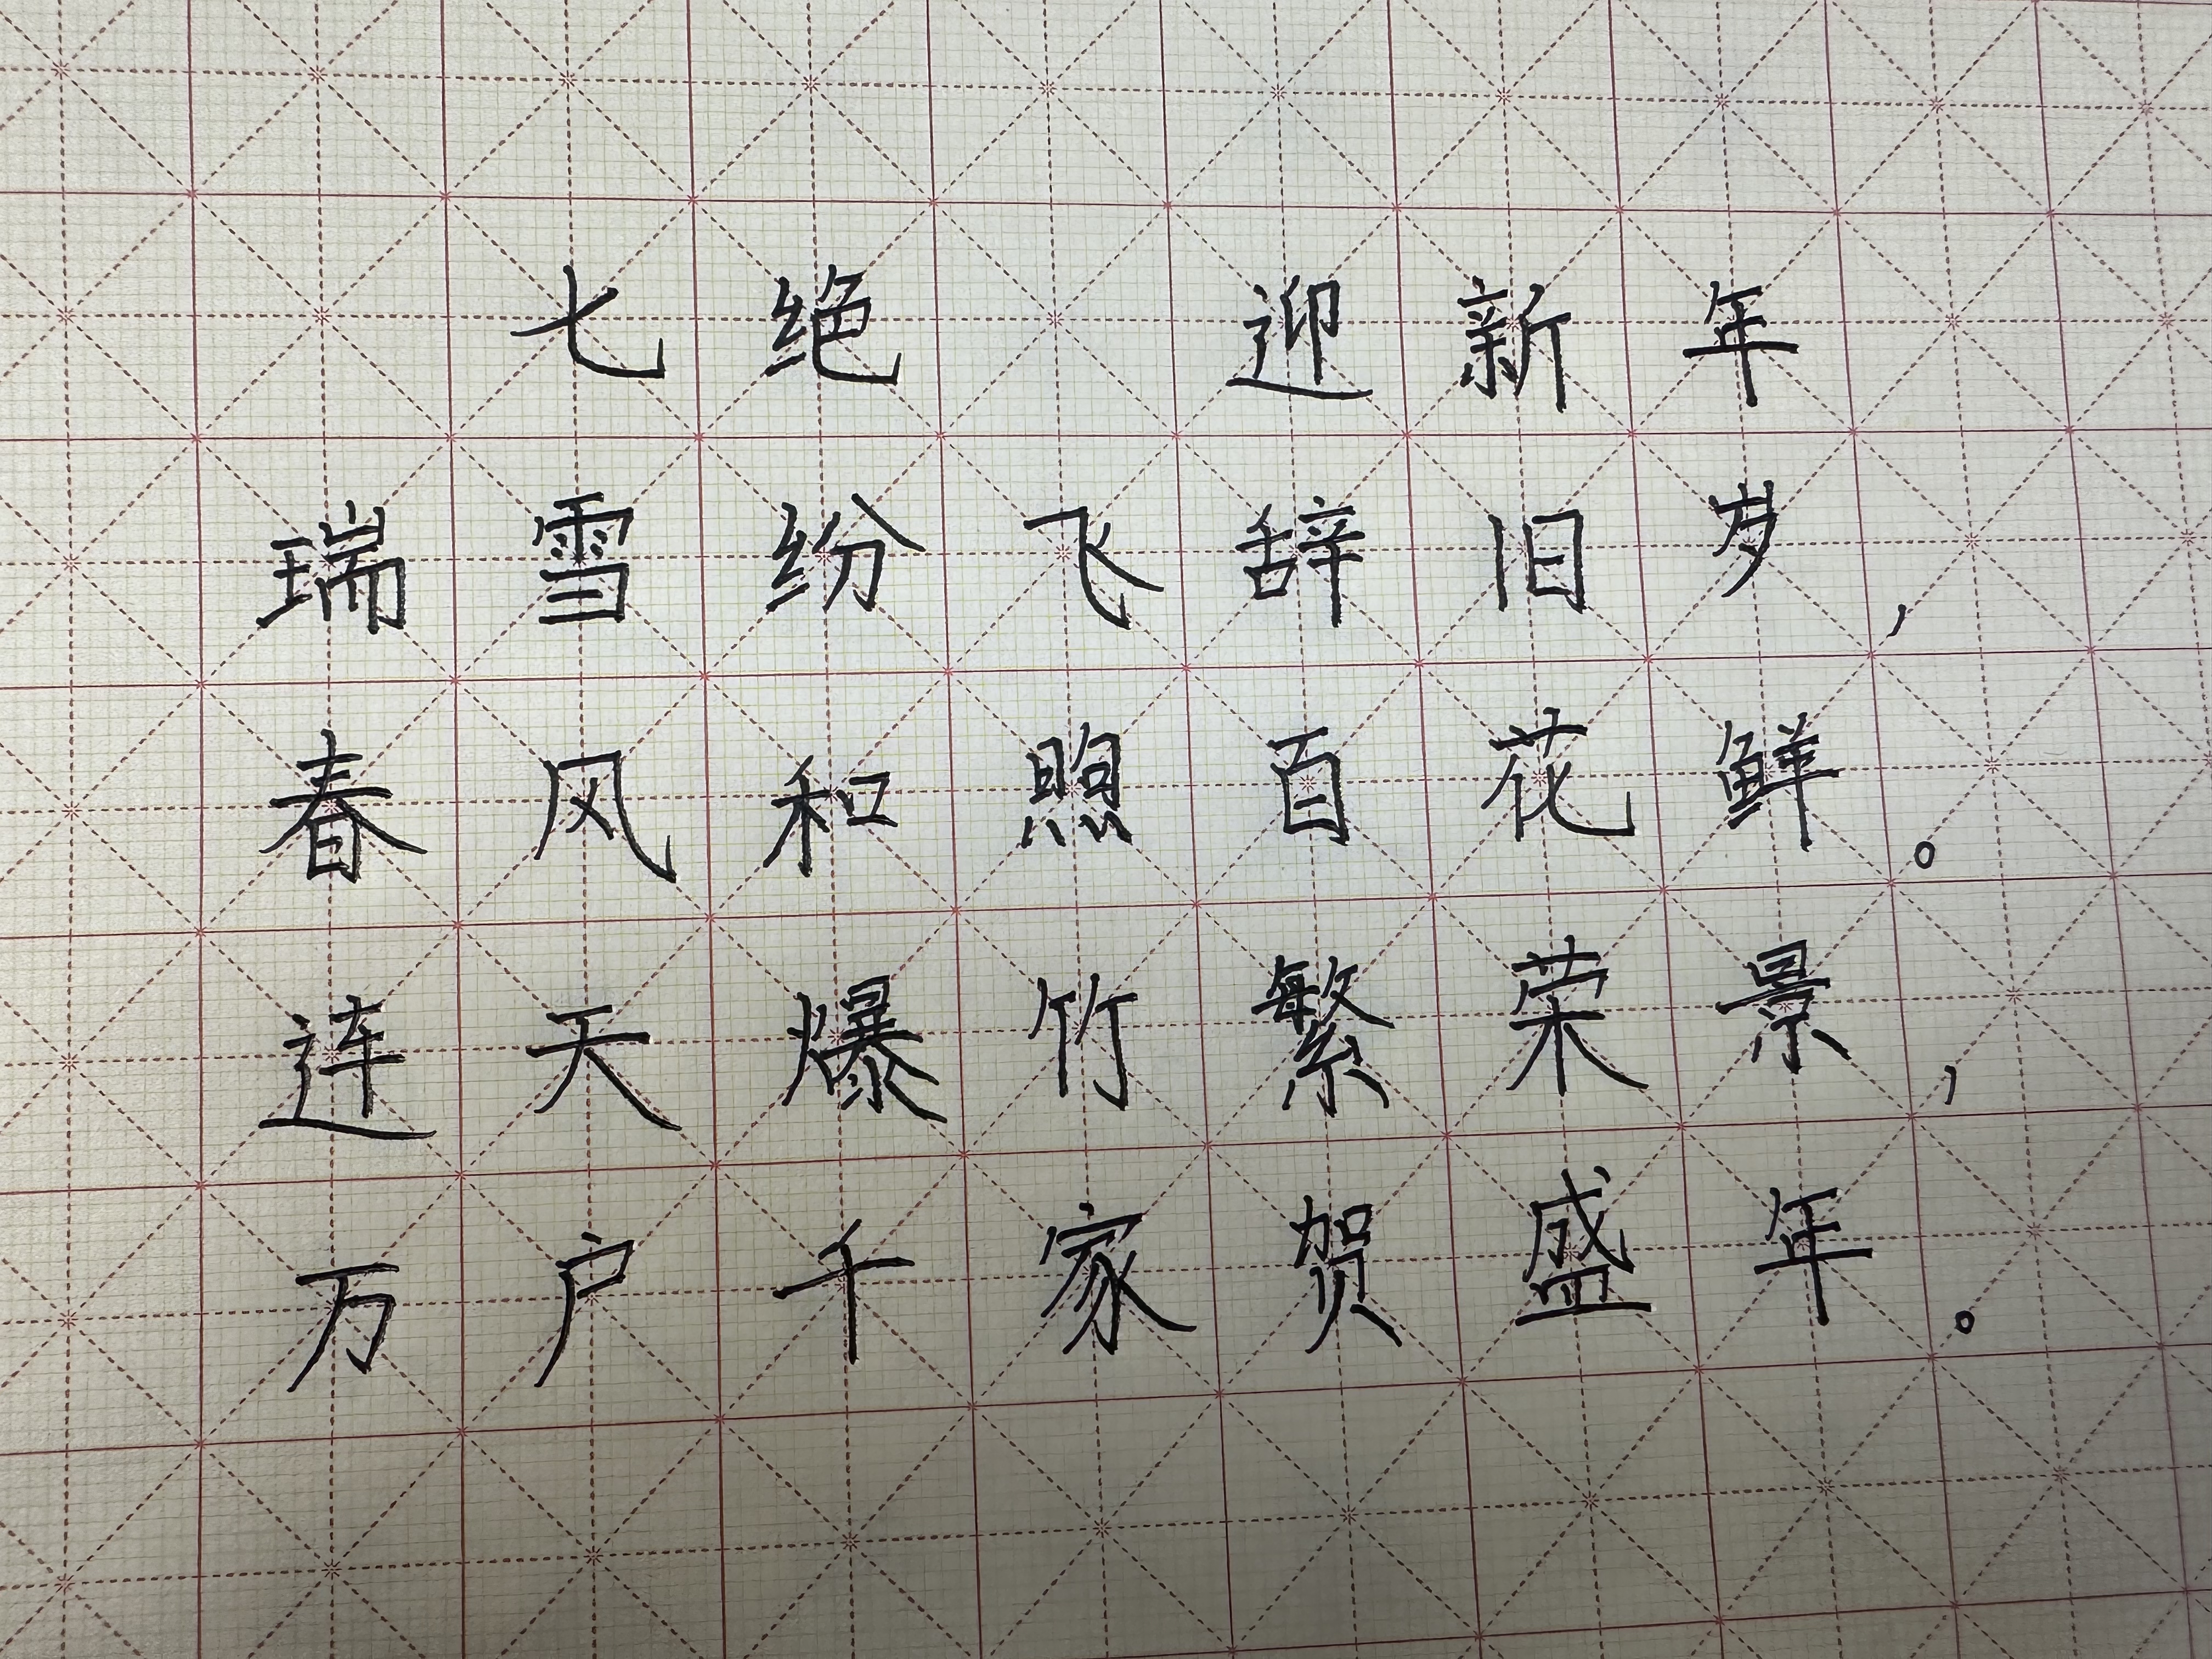 七绝 迎新年
瑞雪纷飞辞旧岁，
春风和煦百花鲜。
连天爆竹繁荣景，
万户千家贺盛年。